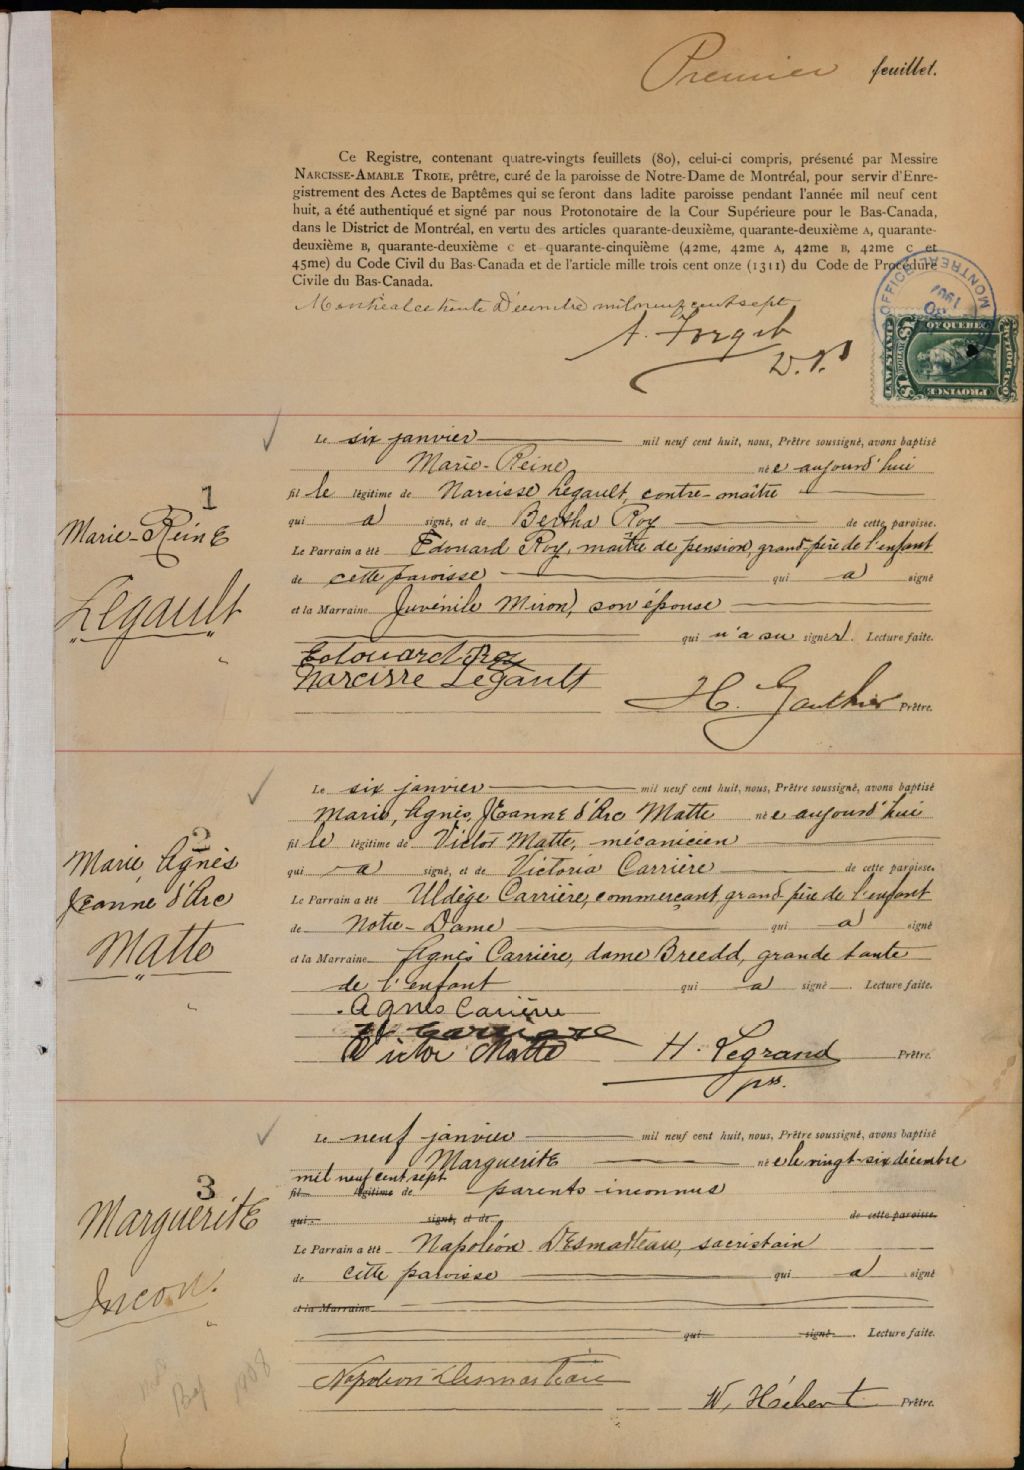 Premier feuillet.
Ce Registre, contenant quatre-vingts feuillets (80), celui-ci compris, présenté par Messire
NARCISSE-AMABLE TROIE, prêtre, curé de la paroisse de Notre-Dame de Montréal, pour servir d'Enre-
gistrement des Actes de Baptêmes qui se feront dans ladite paroisse pendant l'année mil neuf cent
huit, a été authentiqué et signé par nous Protonotaire de la Cour Supérieure pour le Bas-Canada,
dans le District de Montréal, en vertu des articles quarante-deuxième, quarante-deuxième A, quarante-
deuxième B, quarante-deuxième C et quarante-cinquième (42me, 42me A, 42me B, 42me C et
45me) du Code Civil du Bas-Canada et de l'article mille trois cent onze (1311) du Code de Procédure
Civile du Bas-Canada.
Montréal ce trente Décembre mil neuf cent sept
OFFICE MONTREAL
30
1907
LAW STAMP OF QUEBEC
$1 DOLLAR $1
PROVINCE
Le six janvier mil neuf cent huit, nous, Prêtre soussigné, avons baptisé
Marie-Reine née aujourd'hui
fille légitime de Narcisse Légault, contre-maître
qui a signé, et de Bertha Roy de cette paroisse.
Le Parrain a été Édouard Roy, maître de pension, grand-père de l'enfant
de cette paroisse qui a signé
et la Marraine Juvénile Miron, son épouse
qui n'a su signer. Lecture faite.
Edouard Roy
Narcisse Légault
H. Gauthier Prêtre.
1
Marie-Reine
Légault
Le six janvier mil neuf cent huit, nous, Prêtre soussigné, avons baptisé
Marie, Agnès, Jeanne d'Arc Matte née aujourd'hui
fille légitime de Victor Matte, mécanicien
qui a signé, et de Victoria Carrière de cette paroisse.
Le Parrain a été Uldège Carrière, commerçant, grand père de l'enfant
de Notre-Dame qui a signé
et la Marraine Agnès Carrière, dame Breedd, grande tante
de l'enfant qui a signé Lecture faite.
Agnes Carrière
Carrière
Victor Matte
H. Legrand Prêtre.
pss.
2
Marie, Agnès
Jeanne d'Arc
Matte
Le neuf janvier mil neuf cent huit, nous, Prêtre soussigné, avons baptisé
Marguerite née le vingt-six décembre
mil neuf cent sept
fil légitime de parents inconnus
qui signé, et de de cette paroisse.
Le Parrain a été Napoléon Desmarteau, sacristain
de cette paroisse qui a signé
et la Marraine
qui signé Lecture faite.
Napoleon Desmarteau
W. Hébert Prêtre.
3
Marguerite
Incon.
1908